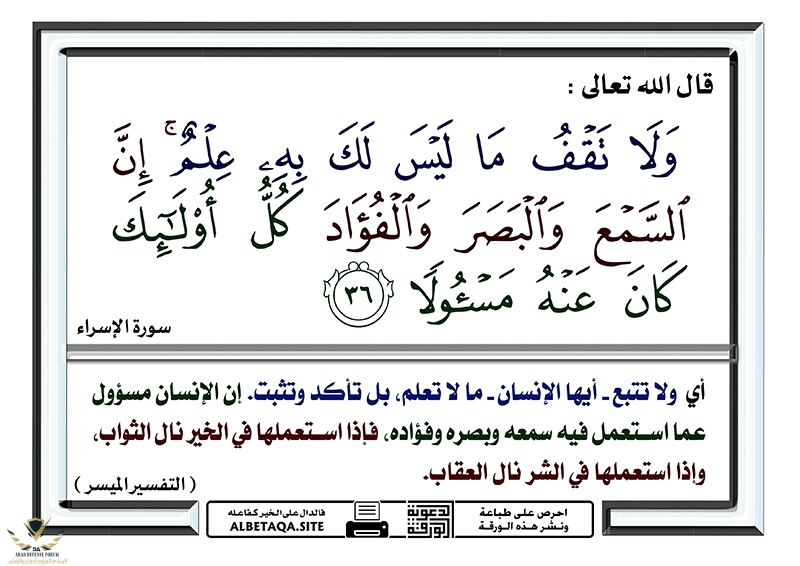 قال الله تعالى :
وَلَا تَقْفُ مَا لَيْسَ لَكَ بِهِۦ عِلْمٌ ۚ إِنَّ
ٱلسَّمْعَ وَٱلْبَصَرَ وَٱلْفُؤَادَ كُلُّ أُو۟لَـٰٓئِكَ
كَانَ عَنْهُ مَسْـُٔولًا ٣٦
سورة الإسراء
أي ولا تتبع ـ أيها الإنسان ـ ما لا تعلم، بل تأكد وتثبت. إن الإنسان مسؤول
عما استعمل فيه سمعه وبصره وفؤاده، فإذا استعملها في الخير نال الثواب،
وإذا استعملها في الشر نال العقاب.
( التفسير الميسر )
احرص على طباعة
ونشر هذه الورقة
الورقة الدعوية
فالدال على الخير كفاعله
ALBETAQA.SITE
ARAB DEFENSE FORUM